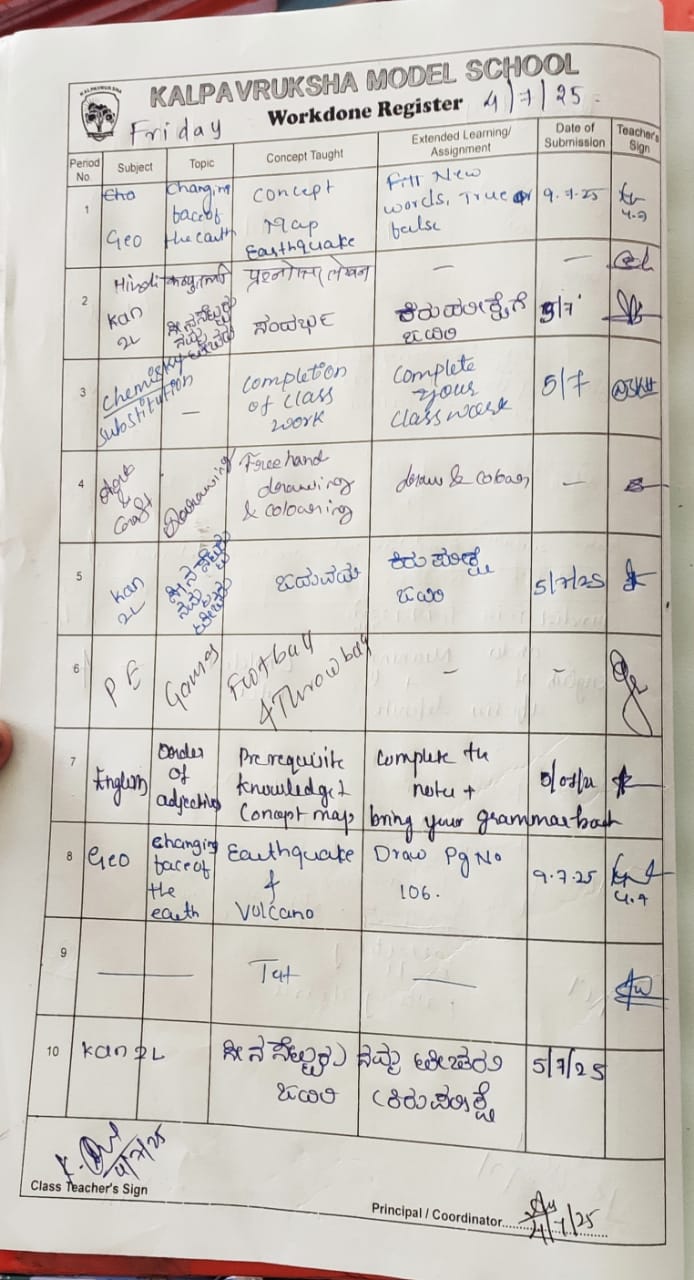 KALPAVRUKSHA
KALPAVRUKSHA MODEL SCHOOL
Workdone Register 4/7/25
Friday
Period No. Subject Topic Concept Taught Extended Learning/ Assignment Date of Submission Teacher's Sign
1 Geo Changing face of the earth Concept Map Earthquake Fill New words, True or false 9.7.25
4.7
2 Hindi कठपुतली प्रश्नोत्तर लेखन — —
Kan 2L ಸಂದರ್ಭ ಕಿರು ಪರೀಕ್ಷೆಗೆ ಓದಿರಿ 5/7
3 Chemistry substitution — Completion of class work Complete your classwork 5/7
4 & Craft Drawing Free hand drawing & colouring draw & colour —
5 Kan 2L ಕಿರು ಪರೀಕ್ಷೆ ಓದಿರಿ 5/7/25
6 P E Games Football & Throwball — –
7 English Order of adjectives Pre requisite knowledge & Concept map Complete the notes + bring your grammar book
8 Geo Changing face of the earth Earthquake & Volcano Draw Pg No 106. 9.7.25
4.7
9 — —
10 Kan 2L ನಮ್ಮ ಟೀಚರು ಓದಿರಿ (ಕಿರು ಪರೀಕ್ಷೆ 5/7/25
4/7/25
Class Teacher's Sign
Principal / Coordinator
4/7/25